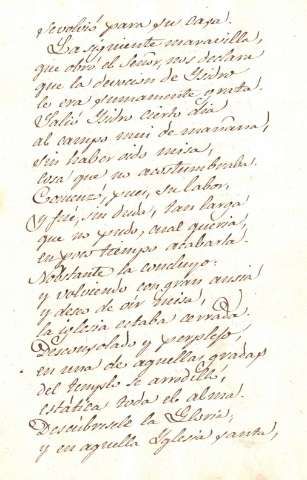 se volvió para su casa.
La siguiente maravilla,
que obró el Señor, nos declara
que la devocion de Isidro
le era sumamente grata.
Salió Isidro cierto dia
al campo mui de mañana,
sin haber oido misa,
cosa que no acostumbraba.
Comenzó, pues, su labor,
Y fué, sin duda, tan larga
que no pudo, cual queria,
en poco tiempo acabarla.
Nobstante la concluyo:
y volviendo con gran ansia
y deseo de oir misa,
la iglesia estaba cerrada.
Desconsolado y perplejo,
en una de aquellas gradas
del templo se arrodilló,
estática toda el alma.
Descubresele la Gloria,
y en aquella Iglesia santa,